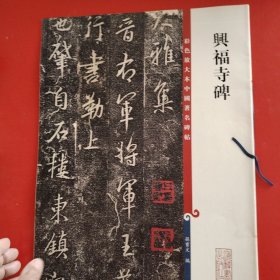 興福寺碑
彩色放大本中國著名碑帖
孫寶文 編
大雅集
晉右軍將軍王羲
行書勒上
也肇自石樓東鎮